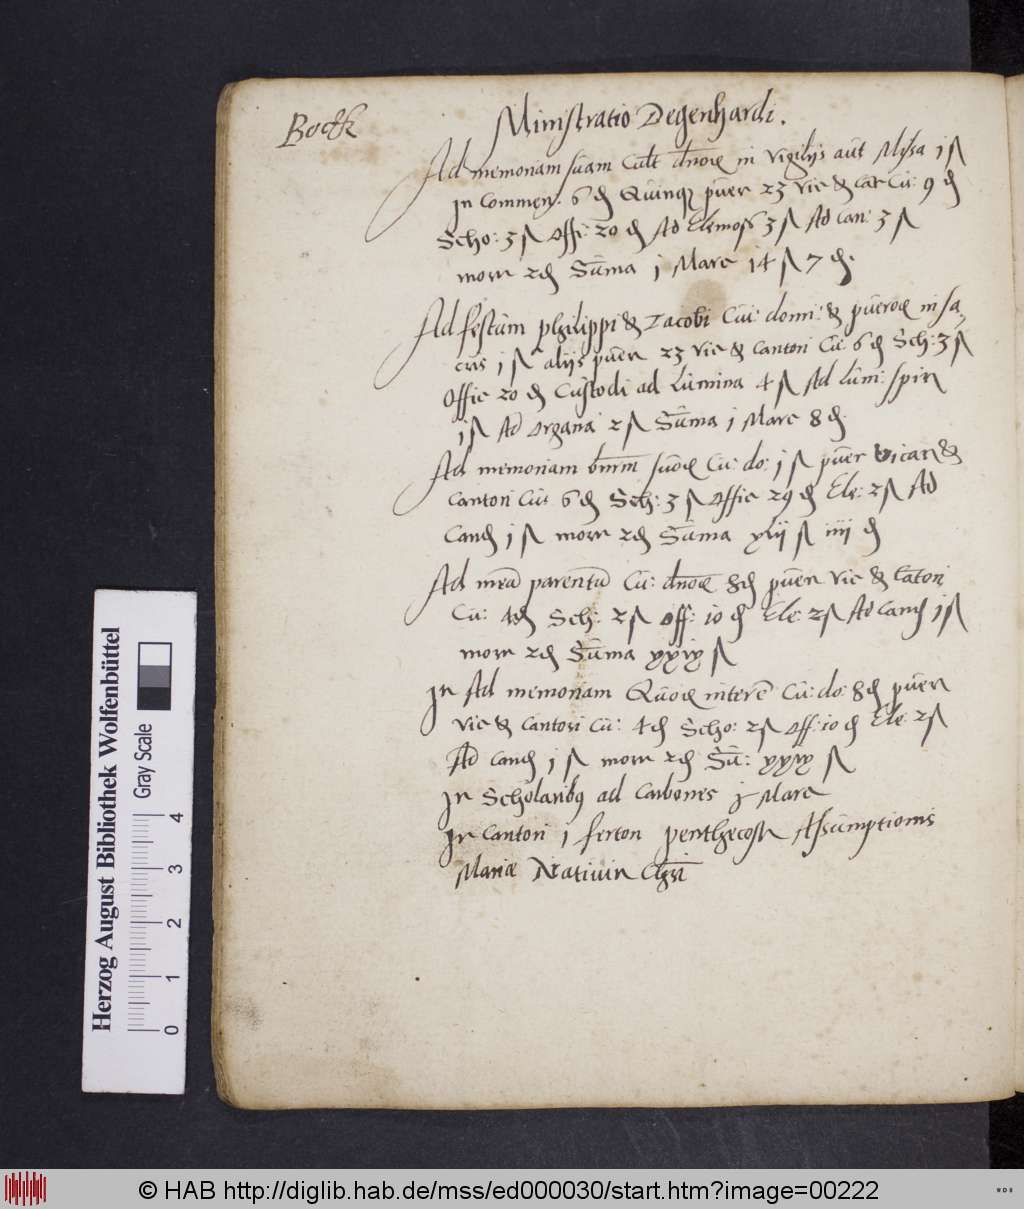 Bock
Ministratio Degenhardi.
Ad memoriam suam Cuilt dn̄oꝝ in vigilijs aut Missa j ß
In Commen: 6 ₰ Quinqȝ puer 23 vic & cat Cui: 9 ₰
Scho: 3 ß Offi: 20 ₰ Ad Elemoß 3 ß Ad can: 3 ß
morr 2 ₰ Sūma j Marc 14 ß 7 ₰.
Ad festum philippi & Jacobi Cui: domi: & pueroꝝ in sa,
cris j ß alijs puer 23 vic & Cantori Cui: 6 ₰ Sch: 3 ß
Offic 20 ₰ Custodi ad Lumina 4 ß Ad lum: spir
j ß Ad organa 2 ß Sūma j Marc 8 ₰.
Ad memoriam suoꝝ Cu: do: j ß puer vicar &
Cantori Cui 6 ₰ Sch: 3 ß Offic 29 ₰ Ele: 2 ß Ad
Cand j ß morr 2 ₰ Sūma xlij ß iiij ₰
Ad meā parentū Cu: dn̄oꝝ 8 ₰ puer vic & Cātori
Cu: 4 ₰ Sch: 2 ß off: 10 ₰ Ele: 2 ß Ad Cand j ß
morr 2 ₰ Sūma xxix ß
Ir Ad memoriam Quoꝝ interē Cu: do: 8 ₰ puer
vic & Cantori Cu: 4 ₰ Scho: 2 ß Off: 10 ₰ Ele: 2 ß
Ad Cand j ß morr 2 ₰ Sū: xxix ß
Ir Scholaribȝ ad Carbones j Marc
Ir Cantori j ferton penthecost Assumptionis
Mariæ Nativir Chri
Herzog August Bibliothek Wolfenbüttel
Gray Scale
0 1 2 3 4
© HAB http://diglib.hab.de/mss/ed000030/start.htm?image=00222